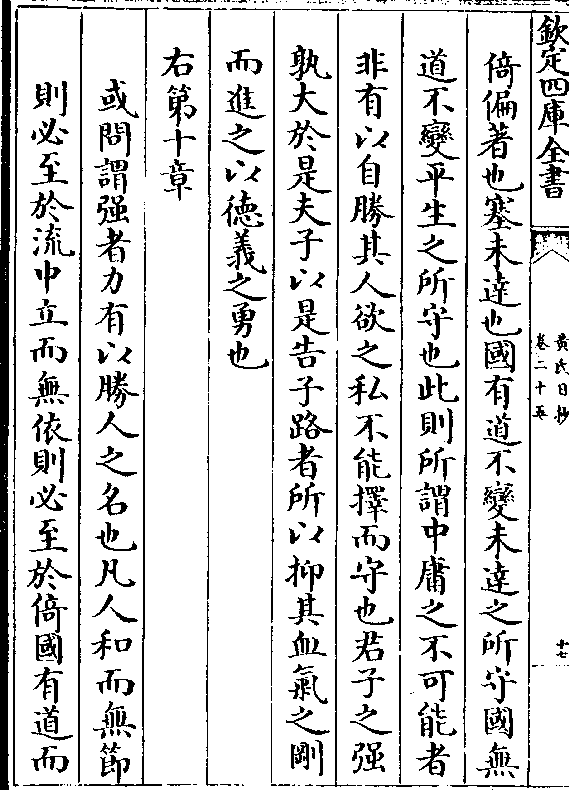 欽定四庫全書
黄氏日抄
卷二十五
十七
倚偏著也塞未達也國有道不變未達之所守國無
道不變平生之所守也此則所謂中庸之不可能者
非有以自勝其人欲之私不能擇而守也君子之强
孰大於是夫子以是告子路者所以抑其血氣之剛
而進之以德義之勇也
右第十章
或問謂强者力有以勝人之名也凡人和而無節
則必至於流中立而無依則必至於倚國有道而